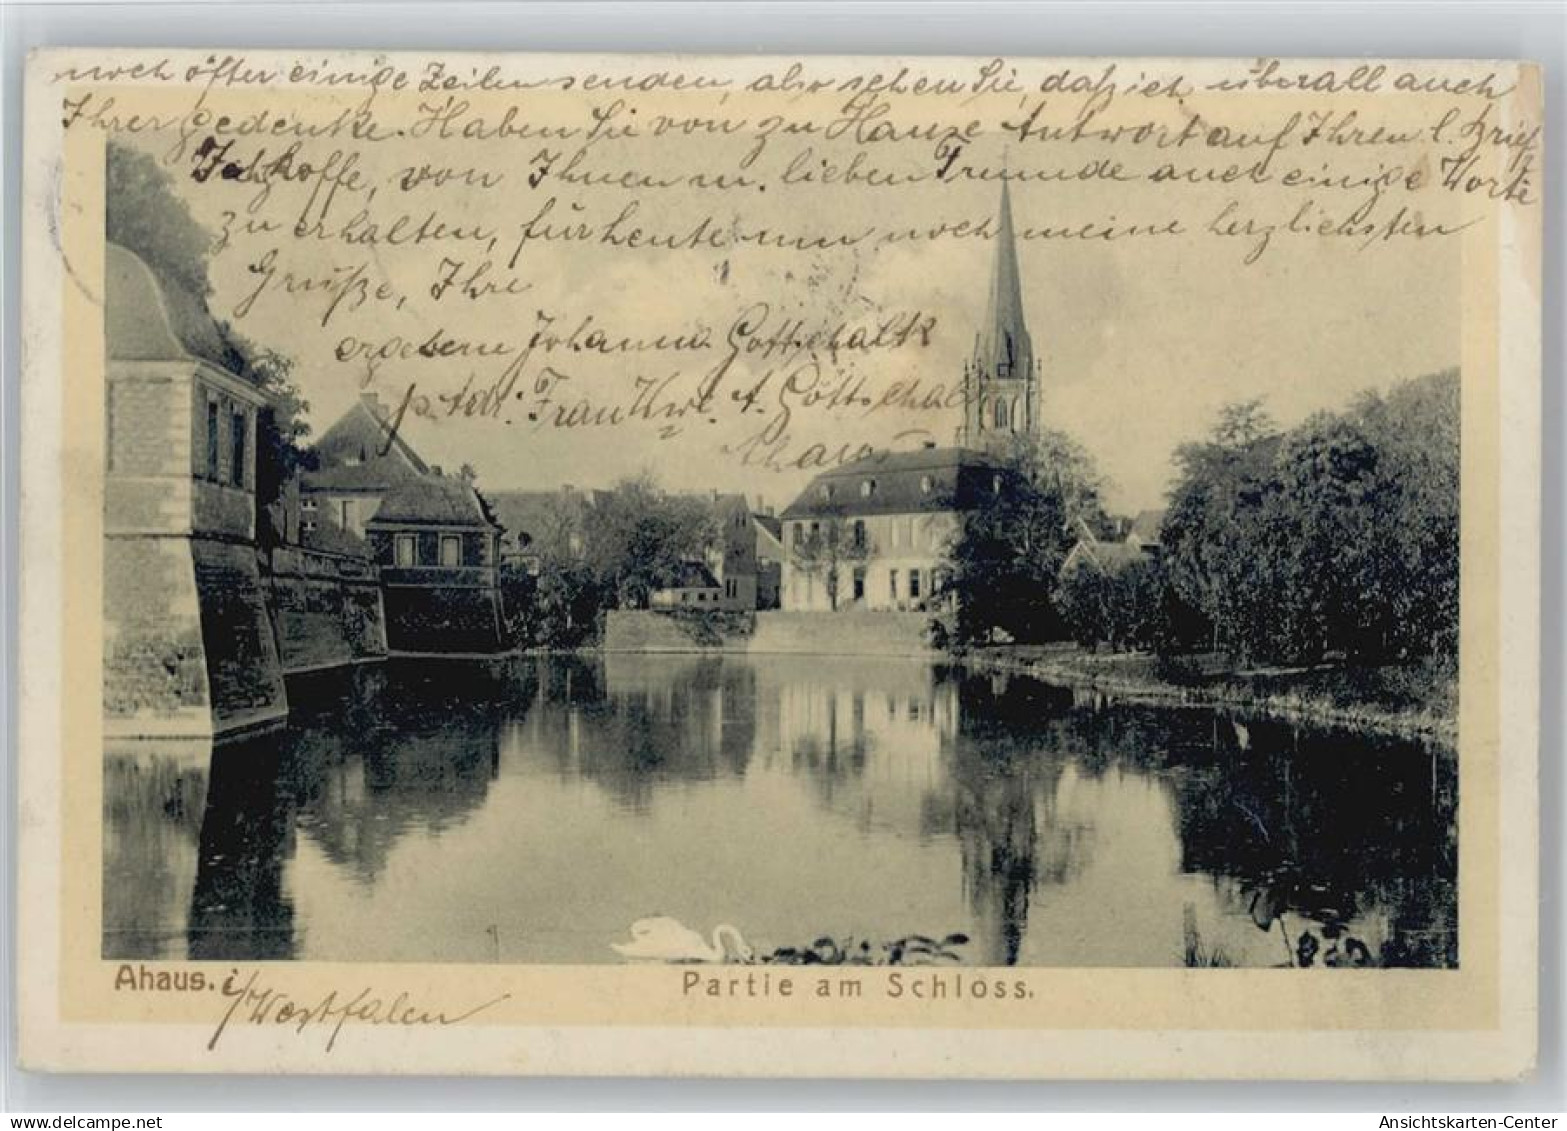 noch öfter einige Zeilen senden, also sehen Sie, daß ich überall auch
Ihrer gedenke. Haben Sie von zu Hause Antwort auf Ihren l. Brief
Ich hoffe, von Ihnen u. lieben Freunde auch einige Worte
zu erhalten, für heute nun noch meine herzlichsten
Grüße, Ihre
ergebene Johanna Gottschalk
p. Adr. Frau Wwe. A. Gottschalk
Ahaus
Ahaus. i/Westfalen
Partie am Schloss.
www.delcampe.net
Ansichtskarten-Center